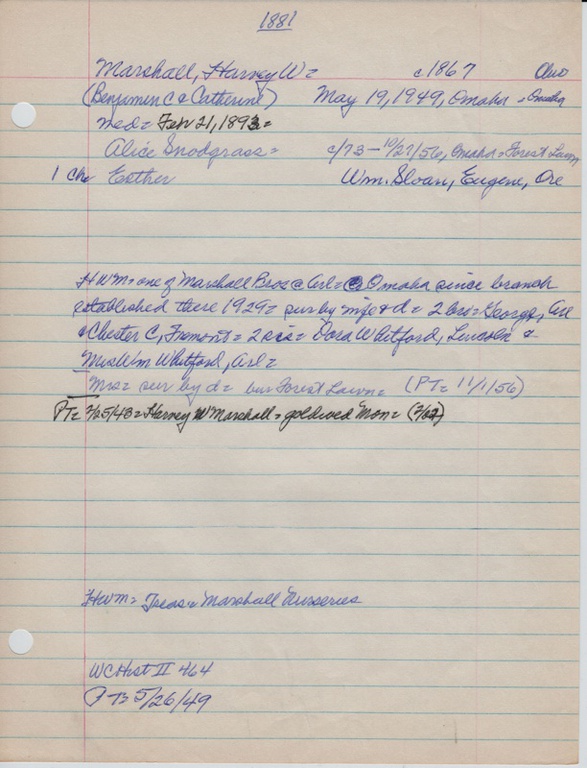 1881
Marshall, Harvey W= c1867 Ohio
(Benjamin C & Catherine) May 19, 1949, Omaha = Omaha
med= Feb 21, 1893=
Alice Snodgrass= c/73 - 10/27/56, Omaha = Forest Lawn
1 Ch= Esther Wm. Sloan, Eugene, Ore
HWM= one of Marshall Bros @ Arl= @ Omaha since branch
established there 1929= sur by wife & d= 2 bro= George, Arl
& Chester C, Fremont= 2 sis= Dora Whitford, Lincoln &
Mrs Wm Whitford, Arl=
Mrs= sur by d= bur Forest Lawn= (PT= 11/1/56)
PT= 2/25/43= Harvey W Marshall= gold wed Mon=
HWM= Treas= Marshall Nurseries
WC Hist II 464
PT= 5/26/49